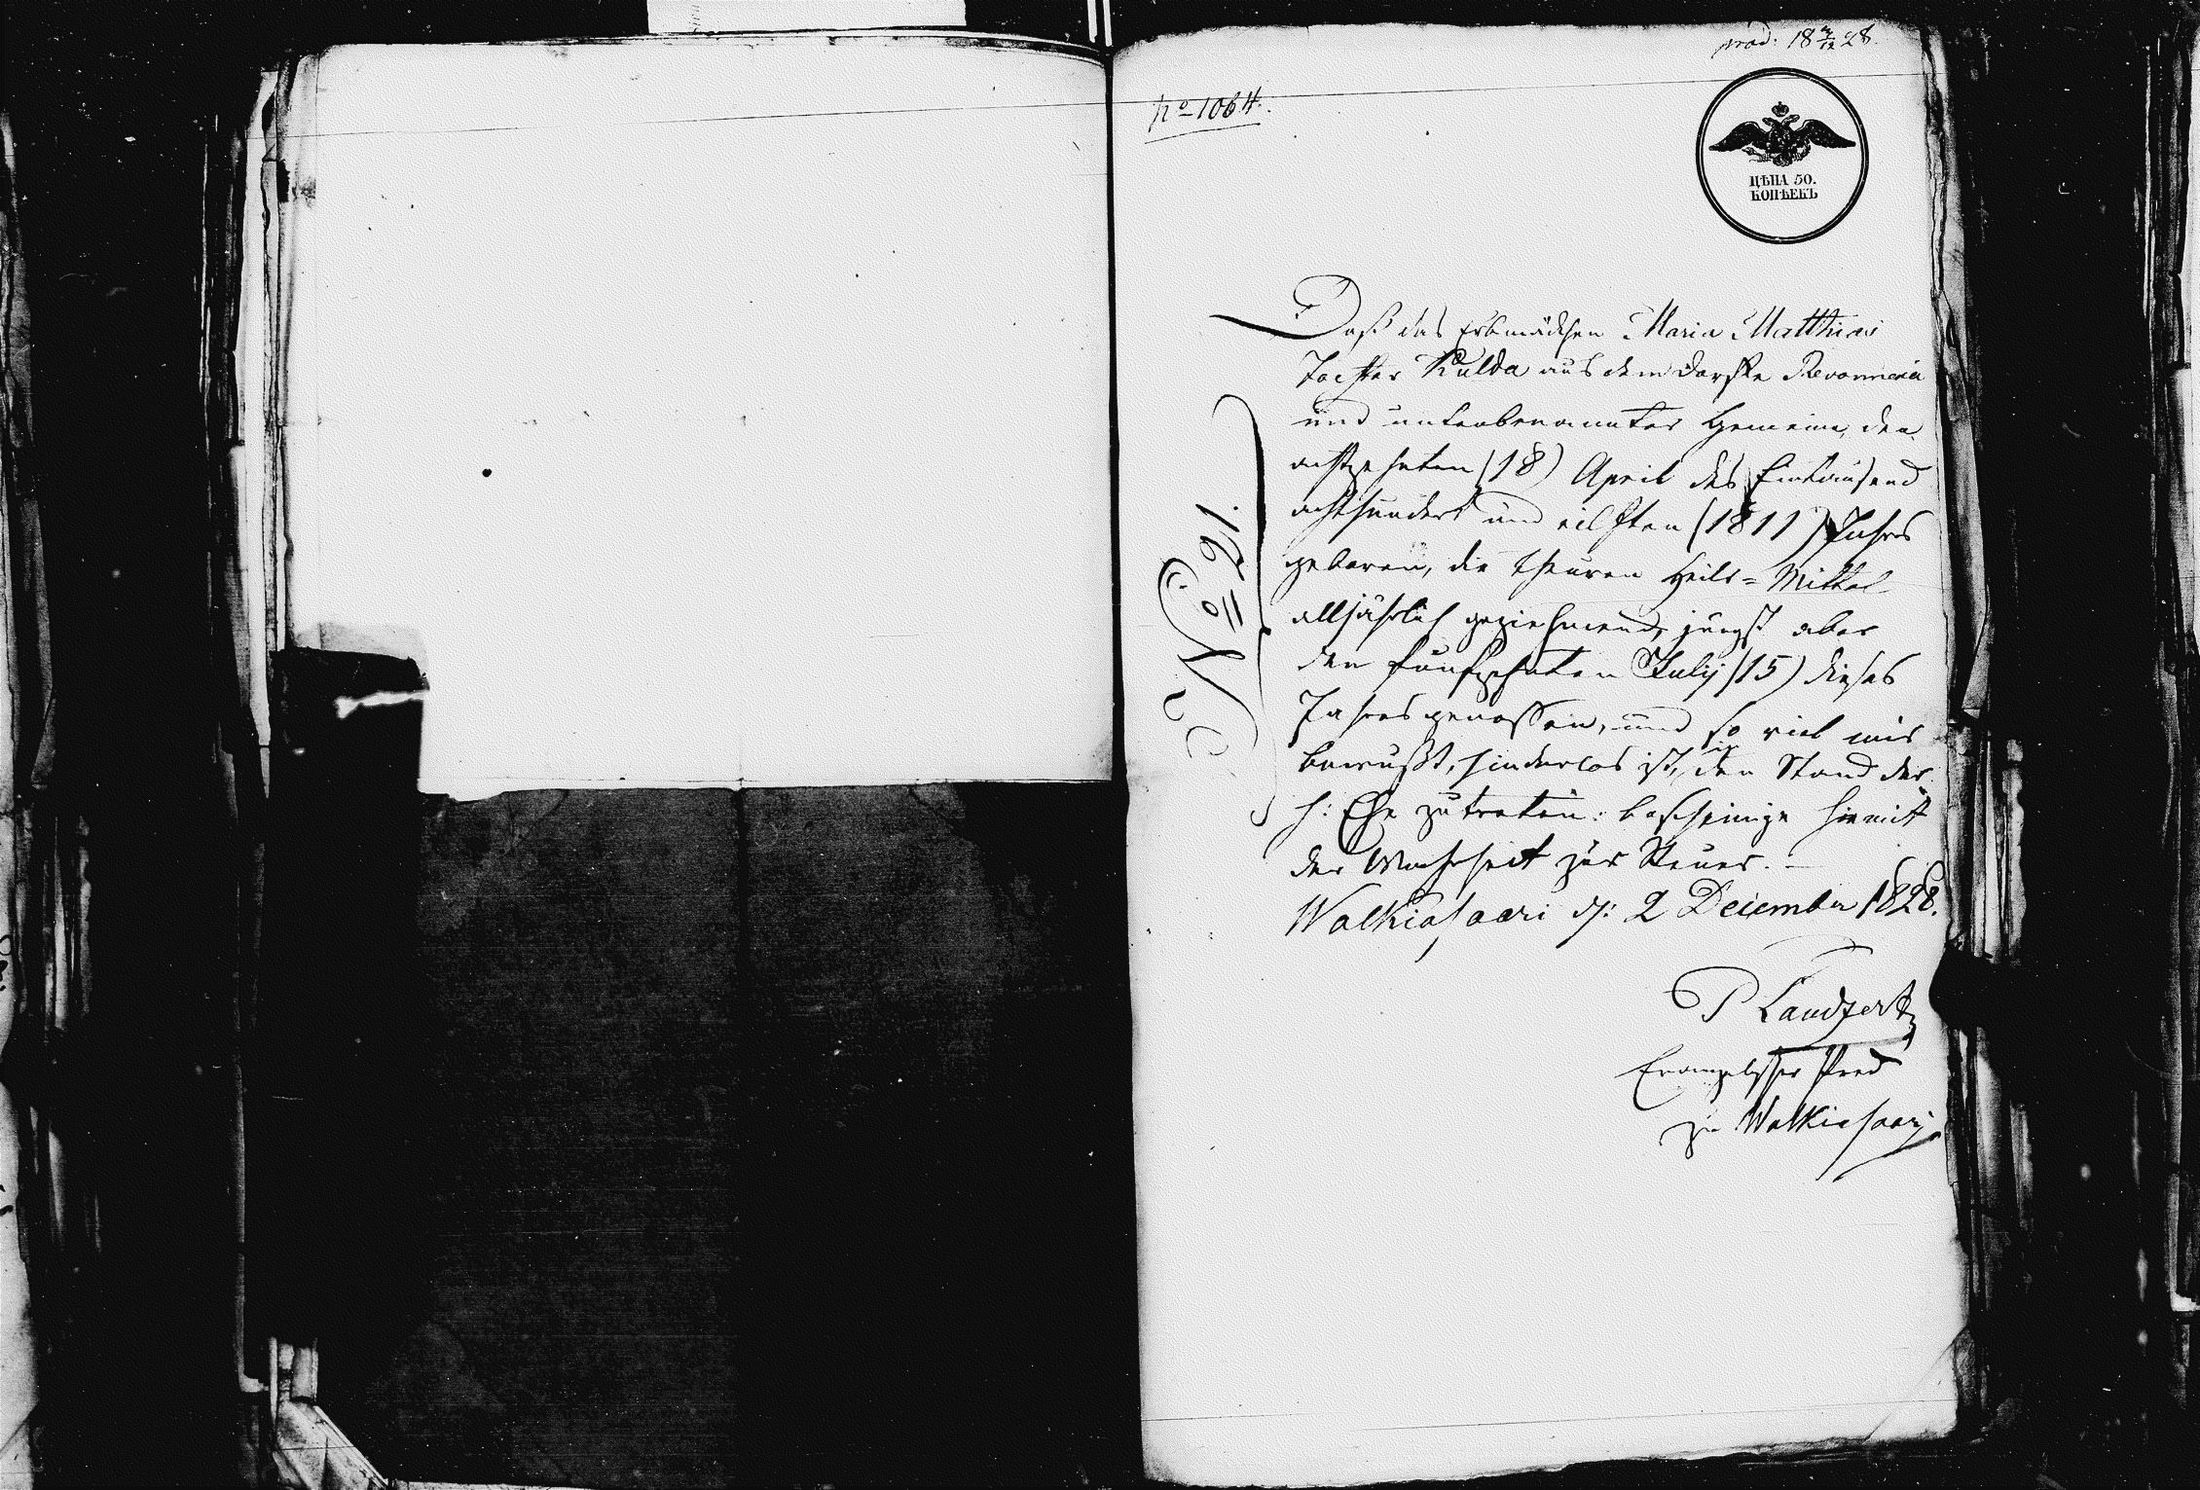 prod: 18 3/12 28.
No 1064.
ЦѢНА 50.
КОПѢЕКЪ
No 21.
Daß das Erbmädchen Maria Matthias
Tochter Kulda aus dem Dorfe
und untenbenannter Gemeine, den
achtzehnten (18) April des Eintausend
achthundert und eilften (1811) Jahres
geboren, die theuren Heils=Mittel
alljährlich geziehmend, jüngst aber
den fünfzehnten Julij (15) dieses
Jahres genossen, und so viel mir
bewußt, hinderlos ist, in den Stand der
h: Ehe zu treten: bescheinige hiemit
der Wahrheit zur Steuer.
Walkiasaari d: 2 December 1828.
P Landzert
Evangelischer Pred
zu Walkiasaari